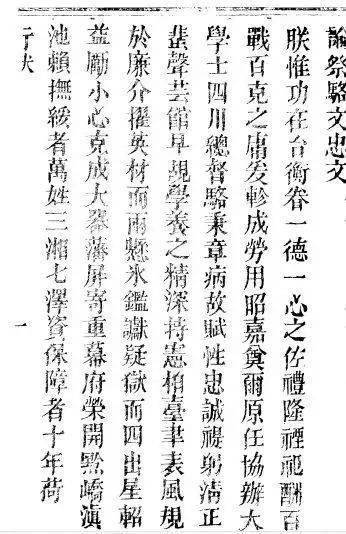 諭祭駱文忠文
朕惟功在台衡眷一德一心之佐禮隆禋祀酬百
戰百克之庸爰軫成勞用昭嘉奠爾原任協辦大
學士四川總督駱秉章病故賦性忠誠禔躬清正
蜚聲芸館早覘學養之精深持憲柏臺聿表風規
於廉介擢英材而兩懸氷鑑讞疑獄而四出星軺
益勵小心克成大器藩屏寄重幕府榮開黔嶠滇
池賴撫綏者萬姓三湘七澤資保障者十年荷
一